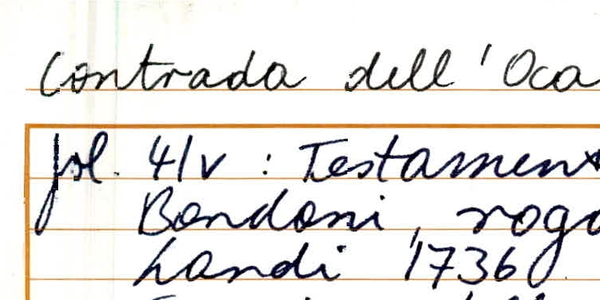 Contrada dell'Oca
fol. 4/v : Testament
Bondoni, rogo
Landi 1736